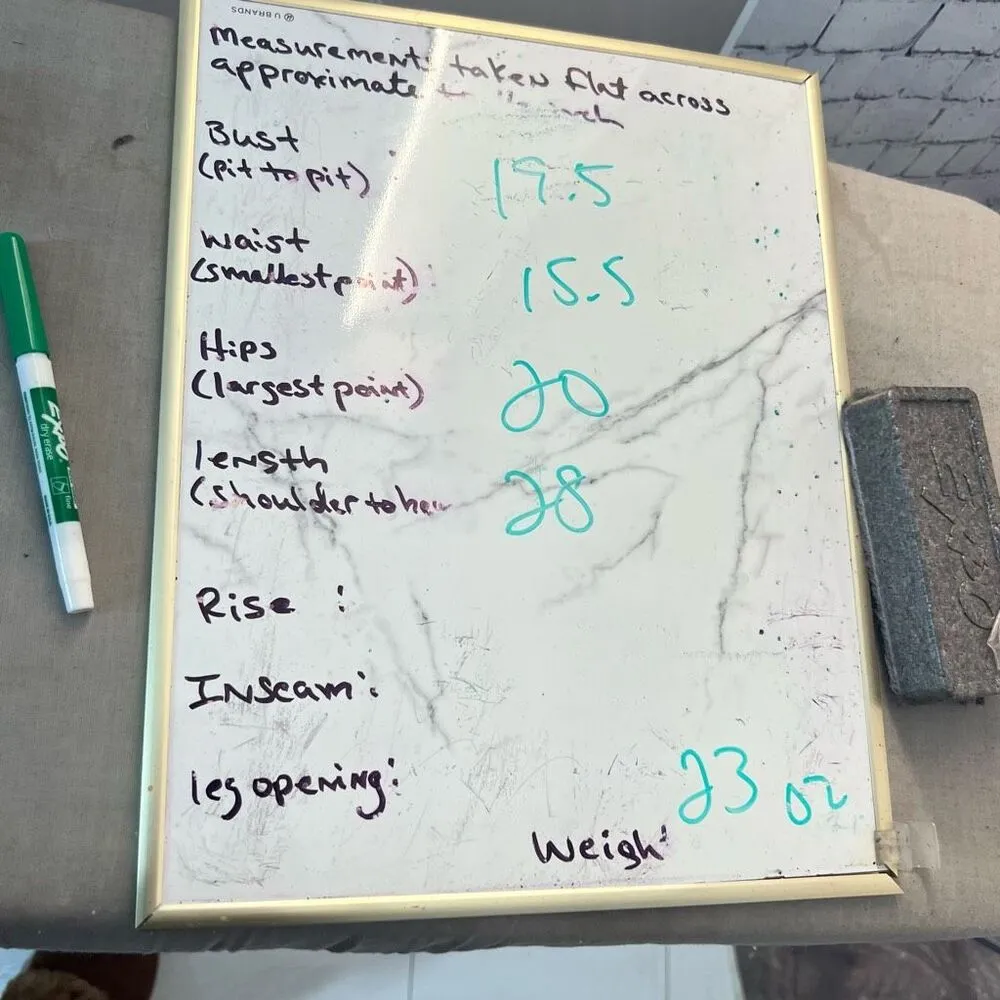 U BRANDS
Measurements taken flat across
approximate inch
Bust
(pit to pit) 19.5
waist
(smallest point) 15.5
Hips
(largest point) 20
length
(shoulder to 28
Rise :
Inseam:
leg opening:
23 oz
Weigh:
EXPO
dry erase
fine